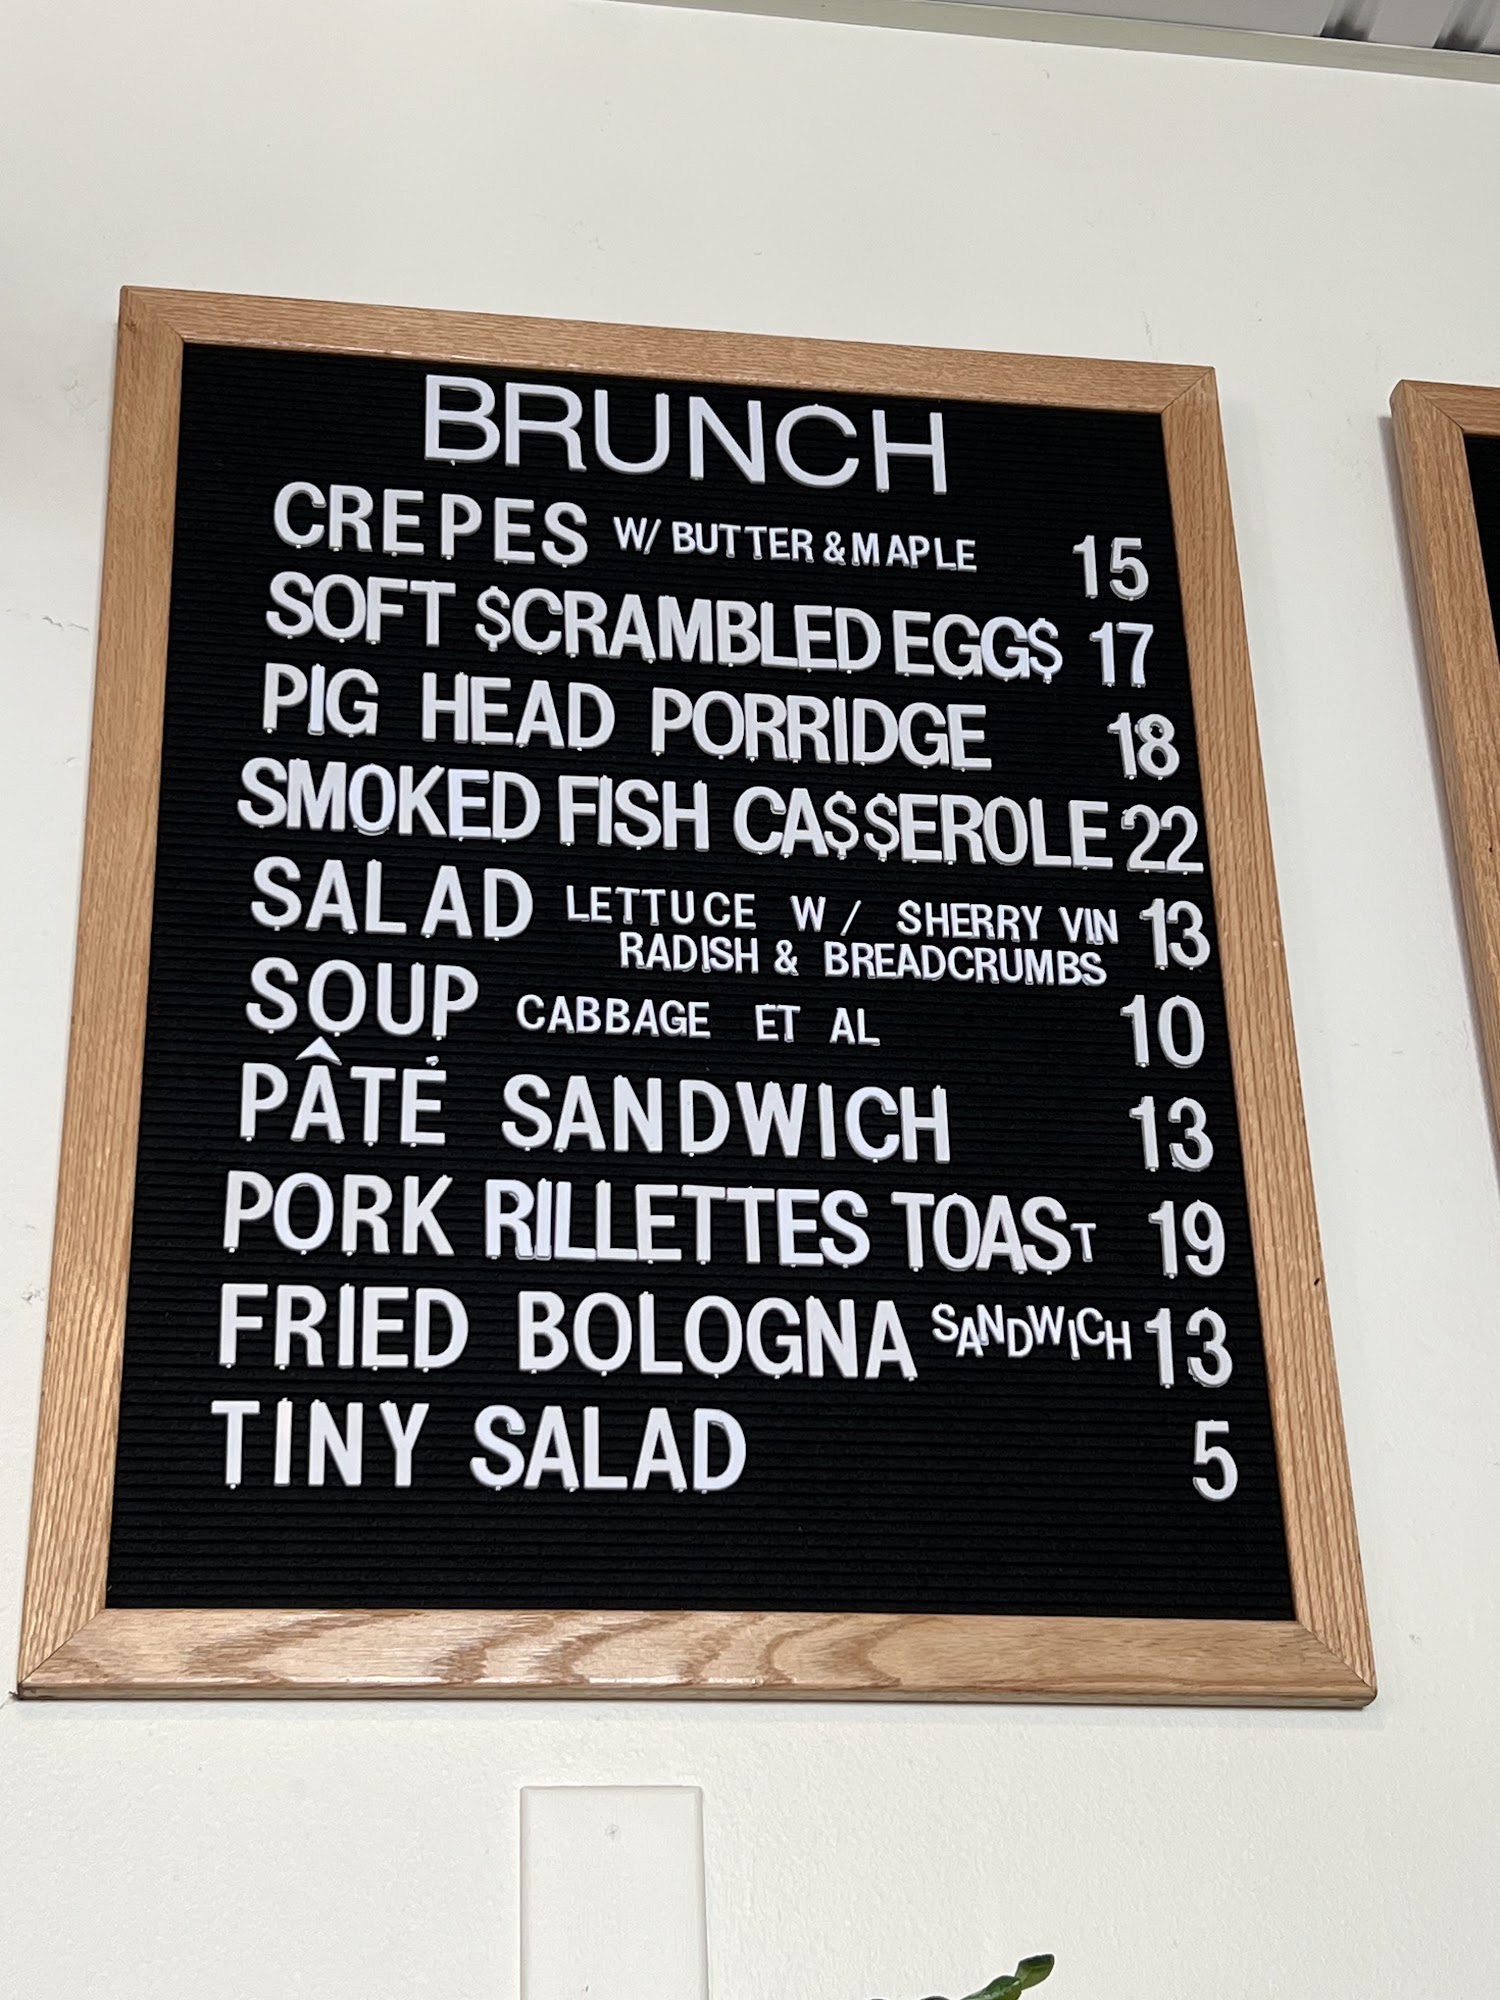 BRUNCH
CREPES W/ BUTTER & MAPLE 15
SOFT $CRAMBLED EGG$ 17
PIG HEAD PORRIDGE 18
SMOKED FISH CA$$EROLE 22
SALAD LETTUCE W/ SHERRY VIN 13
RADISH & BREADCRUMBS
SOUP CABBAGE ET AL 10
PÂTÉ SANDWICH 13
PORK RILLETTES TOAST 19
FRIED BOLOGNA SANDWICH 13
TINY SALAD 5